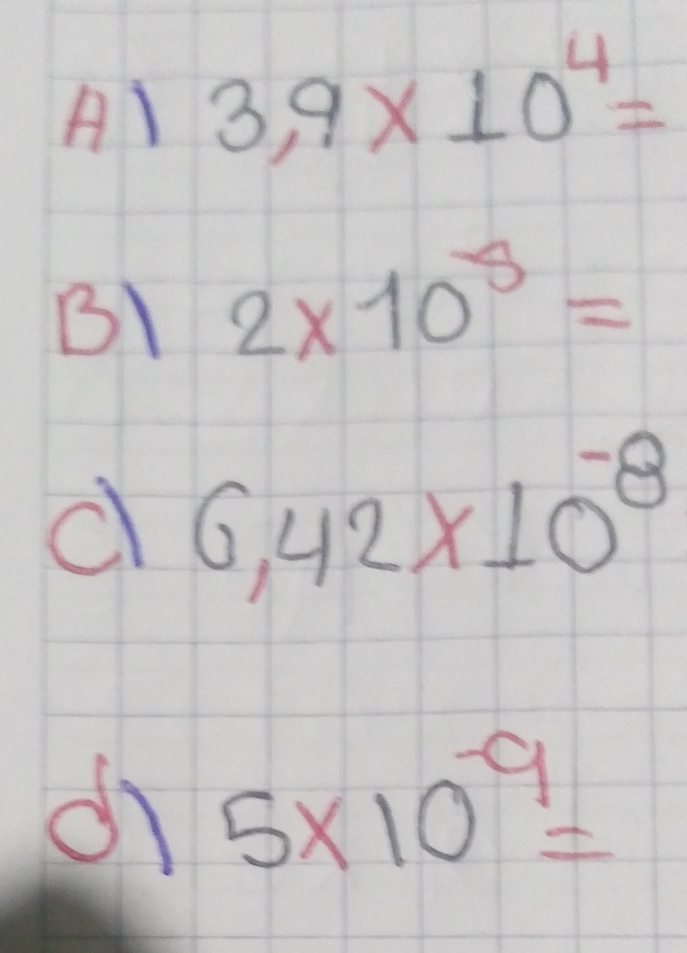 A) 3,9 x 10⁴=
B) 2 x 10⁻⁵ =
C) 6,42 x 10⁻⁸
d) 5 x 10⁻⁹=